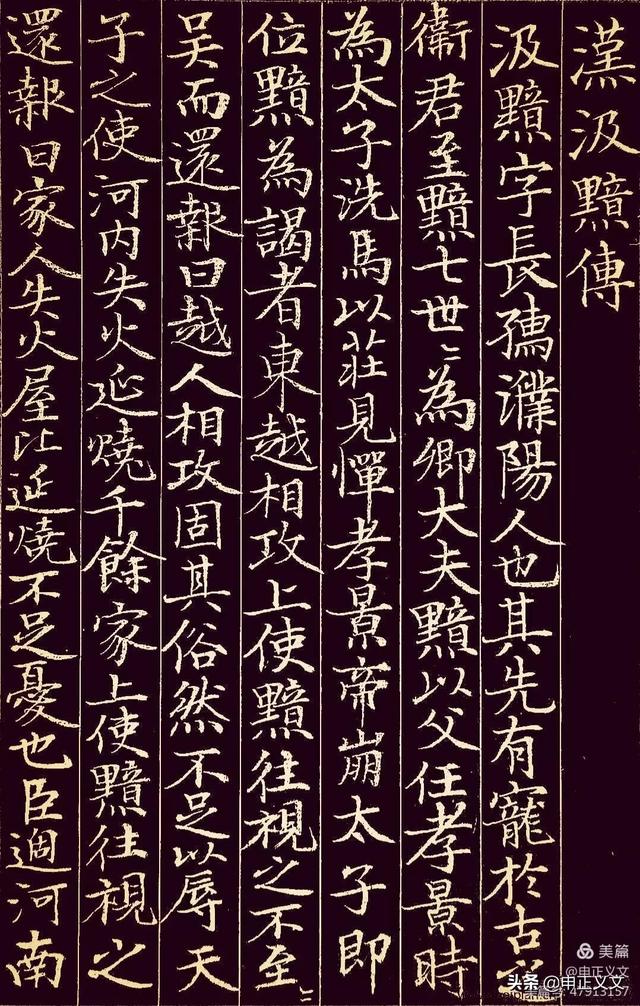 漢汲黯傳
汲黯字長孺濮陽人也其先有寵於古
衛君至黯七世〻為卿大夫黯以父任孝景時
為太子洗馬以莊見憚孝景帝崩太子即
位黯為謁者東越相攻上使黯往視之不至〻
吳而還報曰越人相攻固其俗然不足以辱天
子之使河内失火延燒千餘家上使黯往視之
還報曰家人失火屋比延燒不足憂也臣過河南
美篇
@申正义文
头条 @申正义文